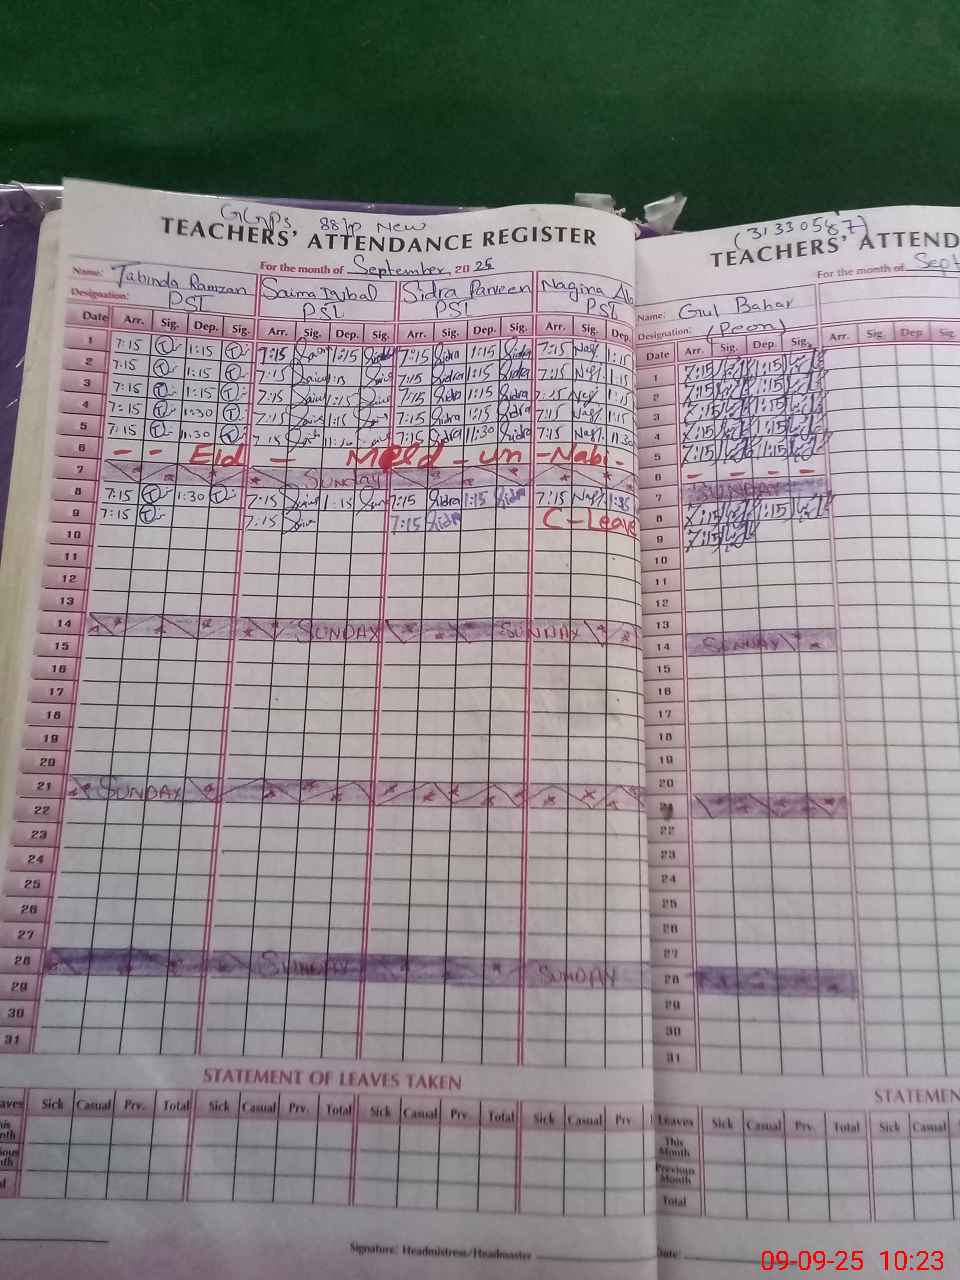 GGPS 88/P New
TEACHERS' ATTENDANCE REGISTER
For the month of September 2025
Name: Tabinda Ramzan Saima Iqbal Sidra Parveen Nagina
Designation: PST PST PST PST
Date Arr. Sig. Dep. Sig. Arr. Sig. Dep. Sig. Arr. Sig. Dep. Sig. Arr. Sig. Dep.
1 7:15 T 1:15 T 7:15 1:15 7:15 Sidra 1:15 Sidra 7:15 1:15
2 7:15 T 1:15 T 7:15 7:15 Sidra 1:15 Sidra 7:15 1:15
3 7:15 T 1:15 T 7:15 1:15 7:15 Sidra 1:15 Sidra 7:15 1:15
4 7:15 T 1:30 T 7:15 1:15 7:15 Sidra 1:15 Sidra 7:15 1:15
5 7:15 T 11:30 T 7:15 7:15 Sidra 11:30 Sidra 7:15 11:30
6 - - Eid - Meld - un - Nabi -
7 SUNDAY
8 7:15 T 1:30 T 7:15 1:15 7:15 Sidra 1:15 Sidra 7:15
9 7:15 T 7:15 7:15 Sidra C-Leave
10
11
12
13
14 SUNDAY SUNDAY
15
16
17
18
19
20
21 SUNDAY
22
23
24
25
26
27
28 SUNDAY SUNDAY
29
30
31
STATEMENT OF LEAVES TAKEN
aves Sick Casual Prv. Total Sick Casual Prv. Total Sick Casual Prv. Total Sick Casual Prv
his
nth
ious
nth
Signature: Headmistress/Headmaster
(31330587)
TEACHERS' ATTEND
For the month of Sept
Name: Gul Bahar
Designation: (Peon)
Date Arr. Sig. Dep. Sig. Arr. Sig. Dep Sig.
1 7:15 1:15
2 7:15 1:15
3 7:15 1:15
4 7:15 1:15
5 7:15 1:15
6 - - - -
7 SUNDAY
8 7:15 1:15
9 7:15
10
11
12
13
14 SUNDAY
15
16
17
18
19
20
21
22
23
24
25
26
27
28
29
30
31
STATEMEN
Leaves Sick Casual Prv. Total Sick Casual
This
Month
Previous
Month
Total
Date:
09-09-25 10:23